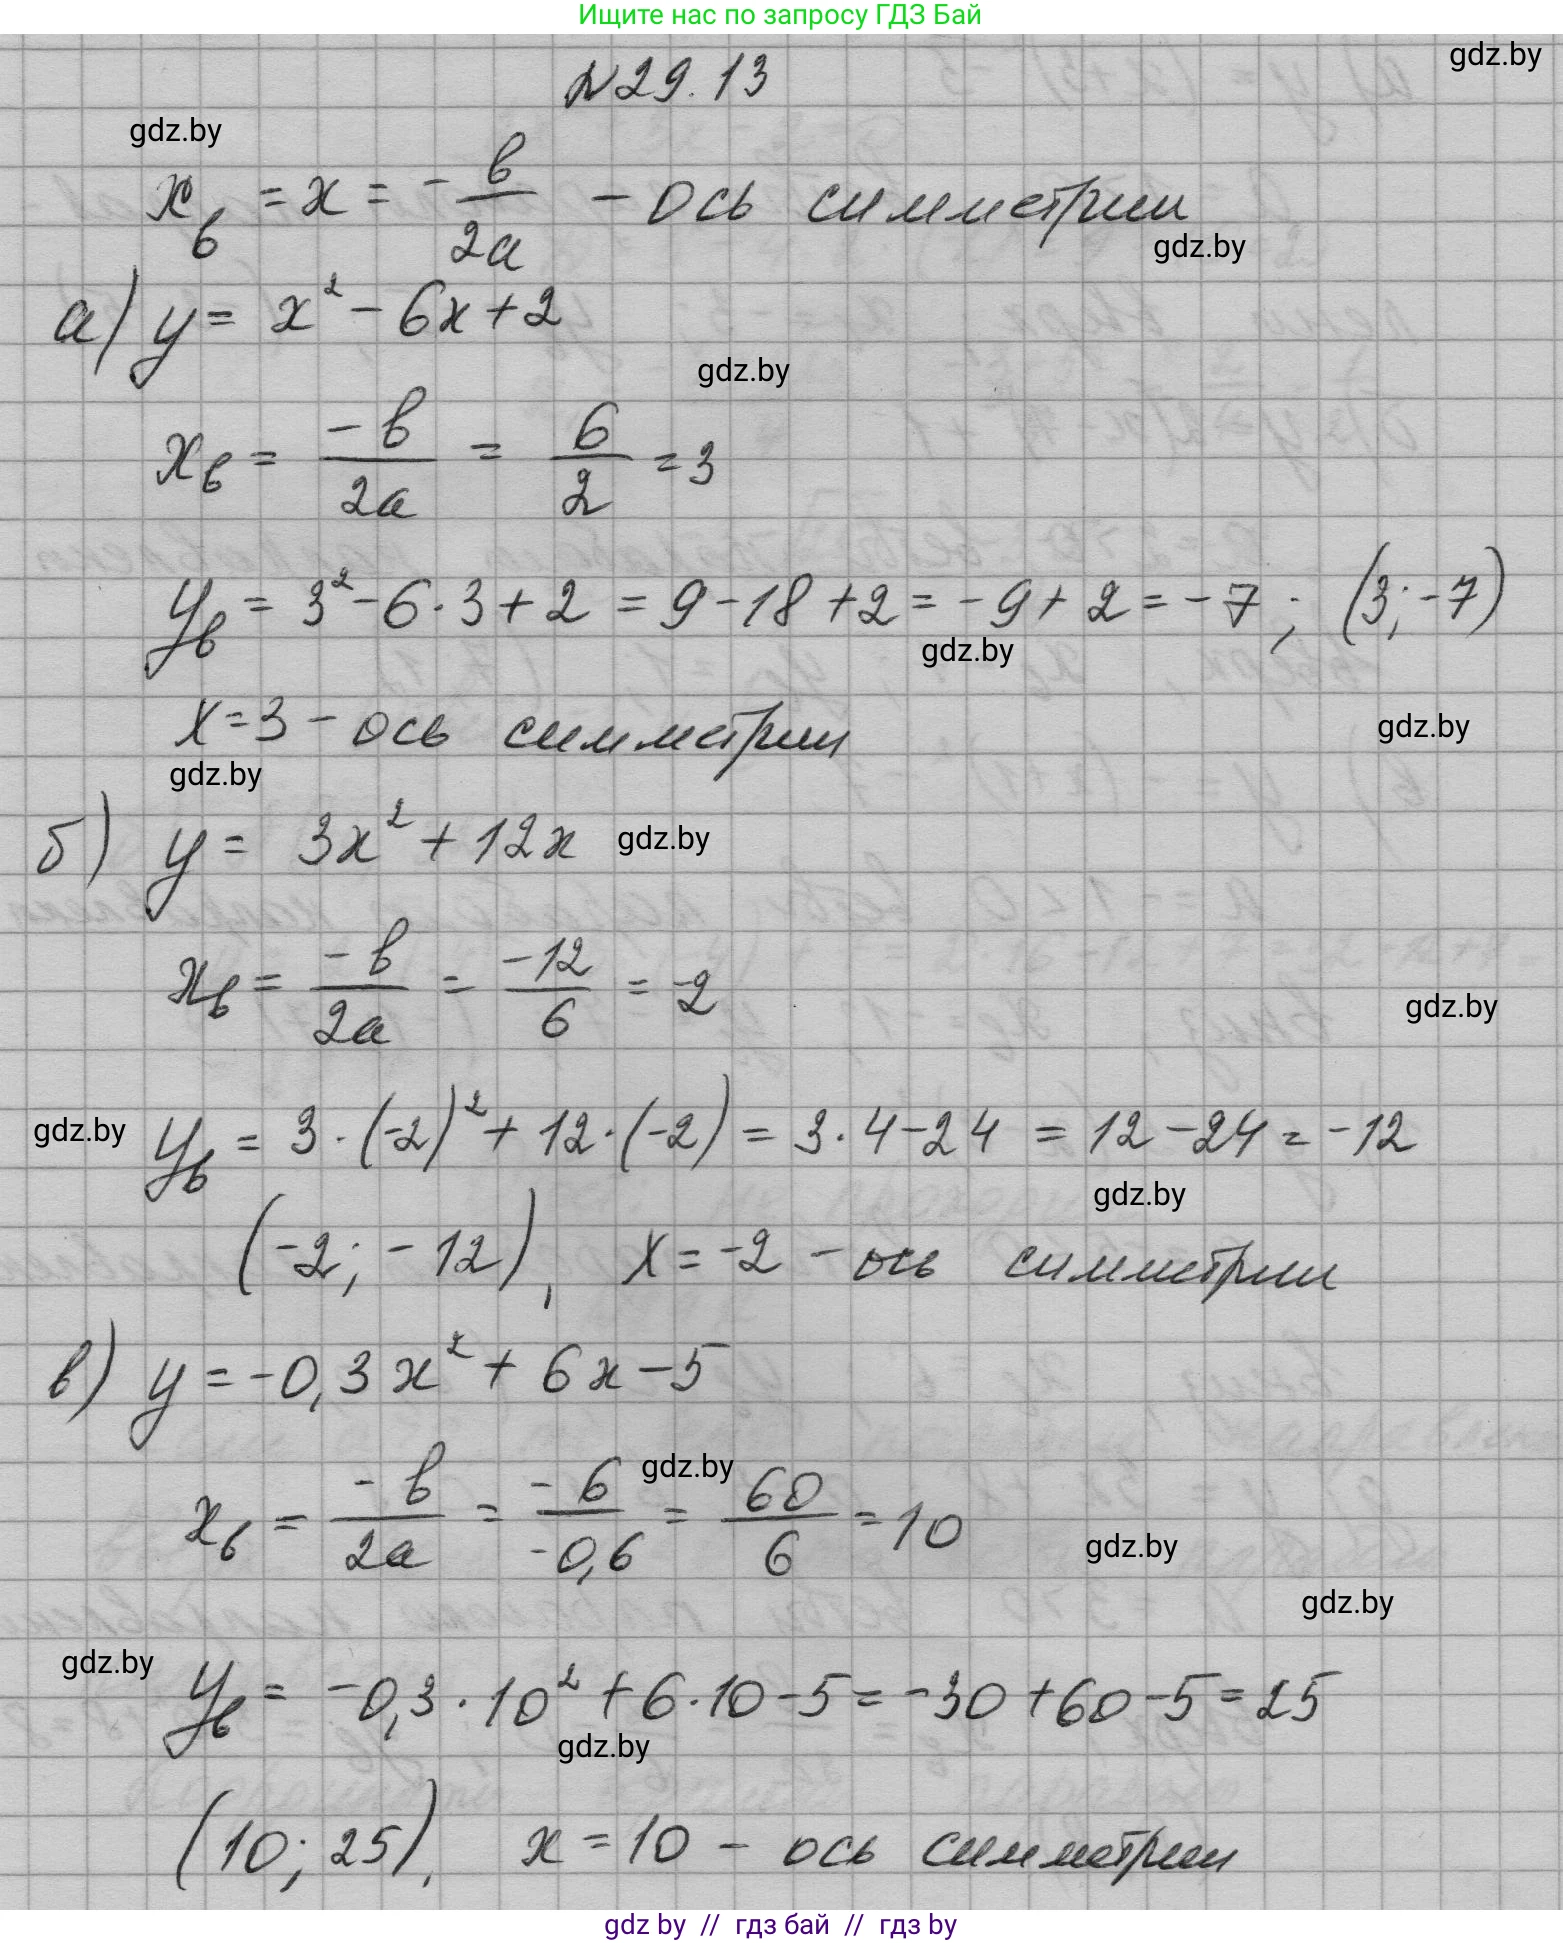 Ищите нас по запросу ГДЗ Бай
gdz.by
№29.13
gdz.by
xв = x = -в/2a - ось симметрии
gdz.by
а) y = x² - 6x + 2
gdz.by
xв = -в/2a = 6/2 = 3
yв = 3² - 6·3 + 2 = 9 - 18 + 2 = -9 + 2 = -7; (3; -7)
gdz.by
x = 3 - ось симметрии
gdz.by
gdz.by
б) y = 3x² + 12x
gdz.by
xв = -в/2a = -12/6 = -2
gdz.by
gdz.by
yв = 3·(-2)² + 12·(-2) = 3·4 - 24 = 12 - 24 = -12
gdz.by
(-2; -12), x = -2 - ось симметрии
в) y = -0,3x² + 6x - 5
gdz.by
xв = -в/2a = -6/-0,6 = 60/6 = 10
gdz.by
gdz.by
gdz.by
yв = -0,3·10² + 6·10 - 5 = -30 + 60 - 5 = 25
gdz.by
(10; 25), x = 10 - ось симметрии
gdz by // гдз бай // гдз by